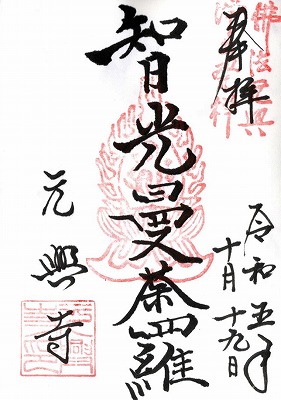 奉拝
令和五年
十月十九日
智光曼荼羅
元興寺